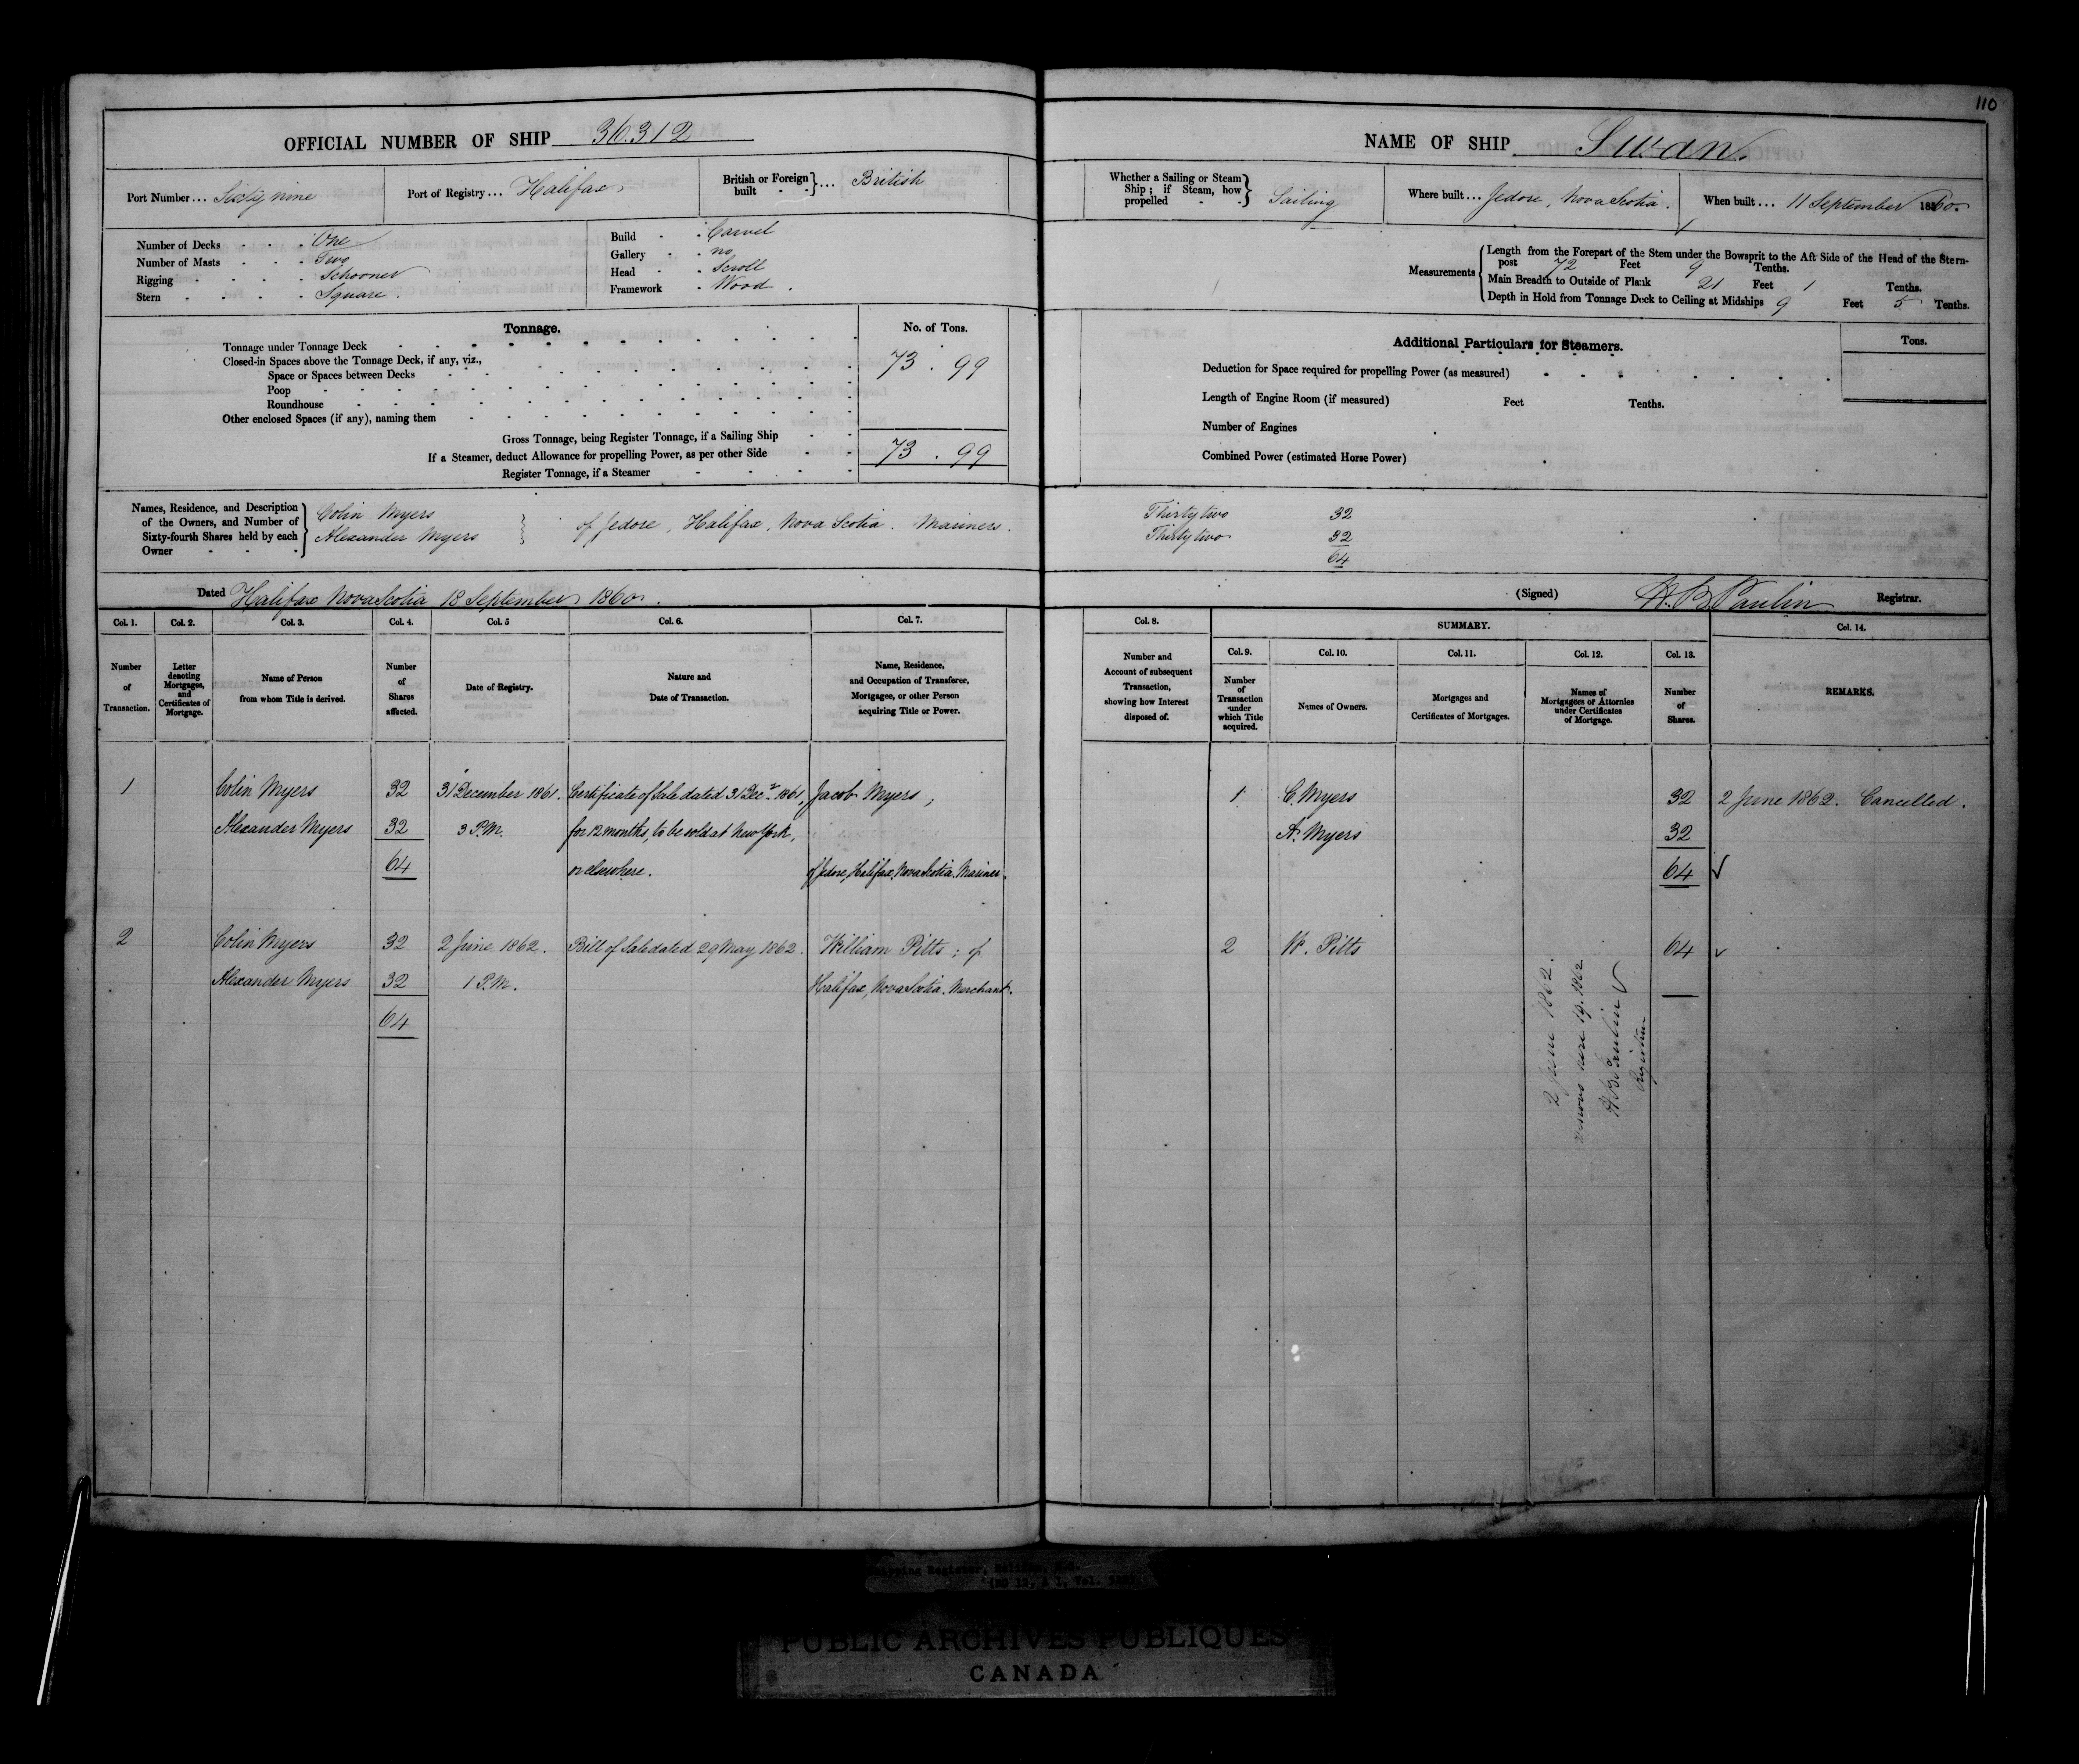 110
OFFICIAL NUMBER OF SHIP 36.312
Port Number ... Sixty nine
Port of Registry ... Halifax
British or Foreign built } ... British
Number of Decks One
Number of Masts Two
Rigging Schooner
Stern Square.
Build Carvel
Gallery no
Head Scroll
Framework Wood.
Tonnage. No. of Tons.
Tonnage under Tonnage Deck
Closed-in Spaces above the Tonnage Deck, if any, viz., 73 . 99
Space or Spaces between Decks
Poop
Roundhouse
Other enclosed Spaces (if any), naming them
Gross Tonnage, being Register Tonnage, if a Sailing Ship
If a Steamer, deduct Allowance for propelling Power, as per other Side 73 . 99
Register Tonnage, if a Steamer
Names, Residence, and Description of the Owners, and Number of Sixty-fourth Shares held by each Owner
Colin Myers
Alexander Myers } of Jedore, Halifax, Nova Scotia. Mariners.
Dated Halifax Nova Scotia 18 September 1860.
NAME OF SHIP Swan.
Whether a Sailing or Steam Ship; if Steam, how propelled } Sailing
Where built ... Jedore, Nova Scotia.
When built ... 11 September 1860.
Measurements
Length from the Forepart of the Stem under the Bowsprit to the Aft Side of the Head of the Stern-
post 72 Feet 9 Tenths.
Main Breadth to Outside of Plank 21 Feet 1 Tenths.
Depth in Hold from Tonnage Deck to Ceiling at Midships 9 Feet 5 Tenths.
Additional Particulars for Steamers. Tons.
Deduction for Space required for propelling Power (as measured)
Length of Engine Room (if measured) Feet Tenths.
Number of Engines
Combined Power (estimated Horse Power)
Thirty two 32
Thirty two 32
64
(Signed) H. B. Paulin Registrar.
Col. 1. Col. 2. Col. 3. Col. 4. Col. 5 Col. 6. Col. 7.
Number of Transaction.
Letter denoting Mortgages, and Certificates of Mortgage.
Name of Person from whom Title is derived.
Number of Shares affected.
Date of Registry.
Nature and Date of Transaction.
Name, Residence, and Occupation of Transferee, Mortgagee, or other Person acquiring Title or Power.
1 Colin Myers 32 31 December 1861. Certificate of Sale dated 31 Decr 1861, Jacob Myers,
Alexander Myers 32 3 P.M. for 12 months, to be sold at New York,
64 or elsewhere. of Jedore, Halifax, Nova Scotia. Mariner.
2 Colin Myers 32 2 June 1862. Bill of Sale dated 29 May 1862. William Pitts; of
Alexander Myers 32 1 P.M. Halifax, Nova Scotia. Merchant.
64
Col. 8. SUMMARY. Col. 14.
Col. 9. Col. 10. Col. 11. Col. 12. Col. 13.
Number and Account of subsequent Transaction, showing how Interest disposed of.
Number of Transaction under which Title acquired.
Names of Owners.
Mortgages and Certificates of Mortgages.
Names of Mortgagees or Attornies under Certificates of Mortgage.
Number of Shares.
REMARKS.
1 C. Myers 32 2 June 1862. Cancelled.
A. Myers 32
64
2 W. Pitts 64
2 June 1862.
1862
H B Paulin
Registrar
Shipping Register, Halifax, N.S.
(RG 12, A 1, Vol.
PUBLIC ARCHIVES PUBLIQUES
CANADA